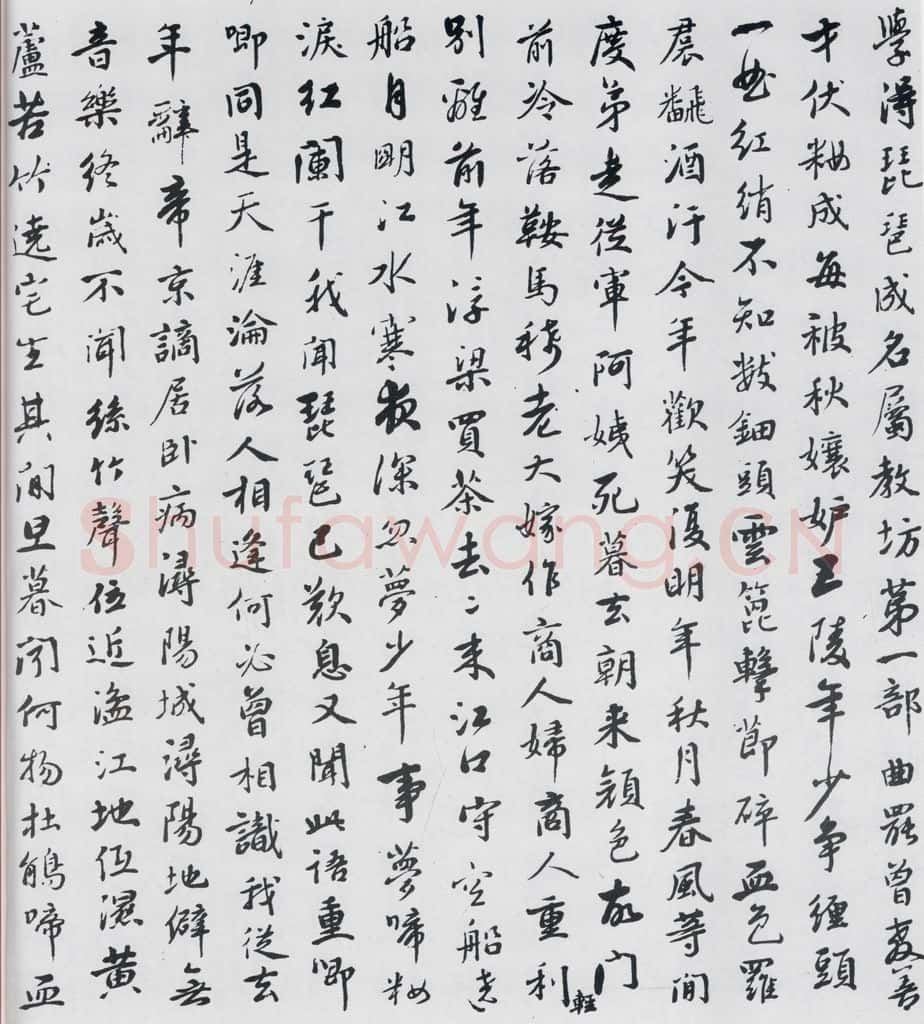 學得琵琶成名屬教坊第一部曲罷曾教善
才伏妝成每被秋娘妒五陵年少争纏頭
一曲紅綃不知數鈿頭雲篦擊節碎血色羅
裙飜酒汙今年歡笑復明年秋月春風等閒
度弟走從軍阿姨死暮去朝来顔色故門
前冷落鞍馬稀老大嫁作商人婦商人重利
輕
別離前年浮梁買茶去去来江口守空船遶
船月明江水寒夜深忽夢少年事夢啼妝
淚紅闌干我聞琵琶已歎息又聞此語重唧
唧同是天涯淪落人相逢何必曾相識我從去
年辭帝京謫居卧病潯陽城潯陽地僻無
音樂終歲不聞絲竹聲住近湓江地低濕黄
蘆苦竹遶宅生其间旦暮闻何物杜鵑啼血
Shufawang.CN